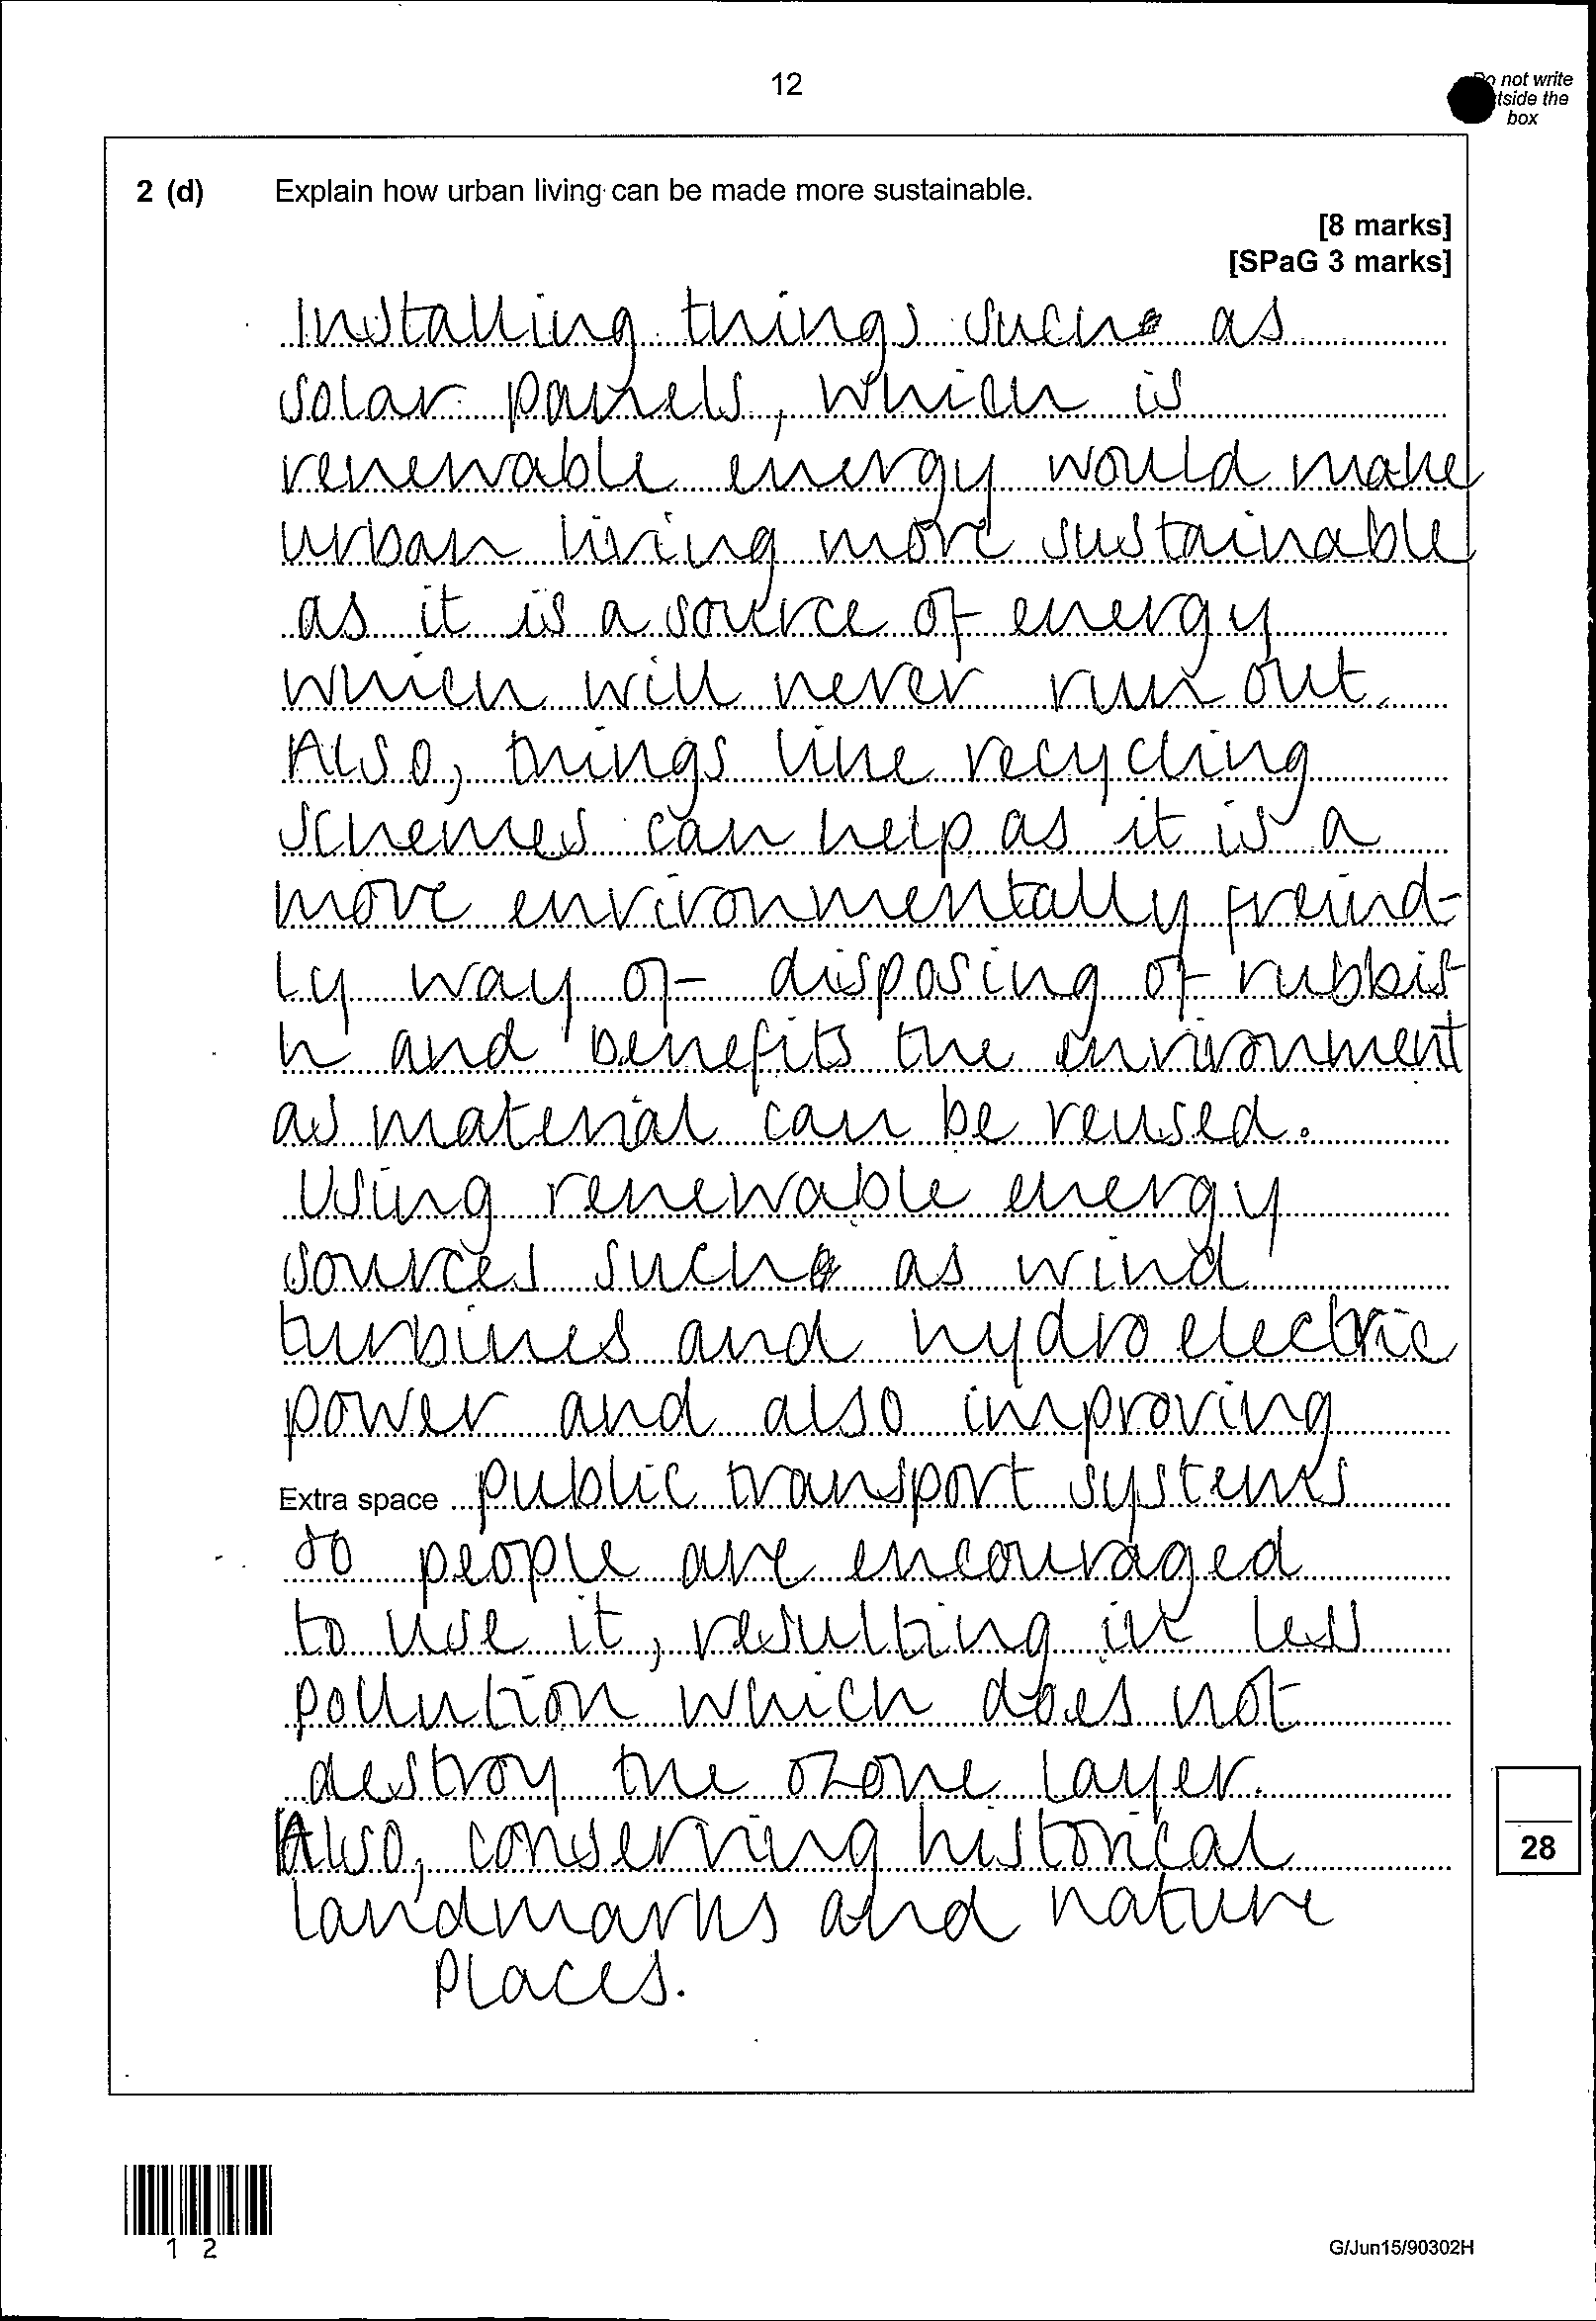 12
Do not write
outside the
box
2 (d) Explain how urban living can be made more sustainable.
[8 marks]
[SPaG 3 marks]
Installing things such as
solar panels, which is
renewable energy would make
urban living more sustainable
as it is a source of energy
which will never run out.
Also, things like recycling
schemes can help as it is a
more environmentally freind-
ly way of disposing of rubbis
h and benefits the environment
as material can be reused.
Using renewable energy
sources such as wind
turbines and hydroelectric
power and also improving
Extra space public transport systems
so people are encouraged
to use it, resulting in less
pollution which does not
destroy the ozone layer.
Also, conserving historical
landmarks and nature
places.
28
1 2
G/Jun15/90302H